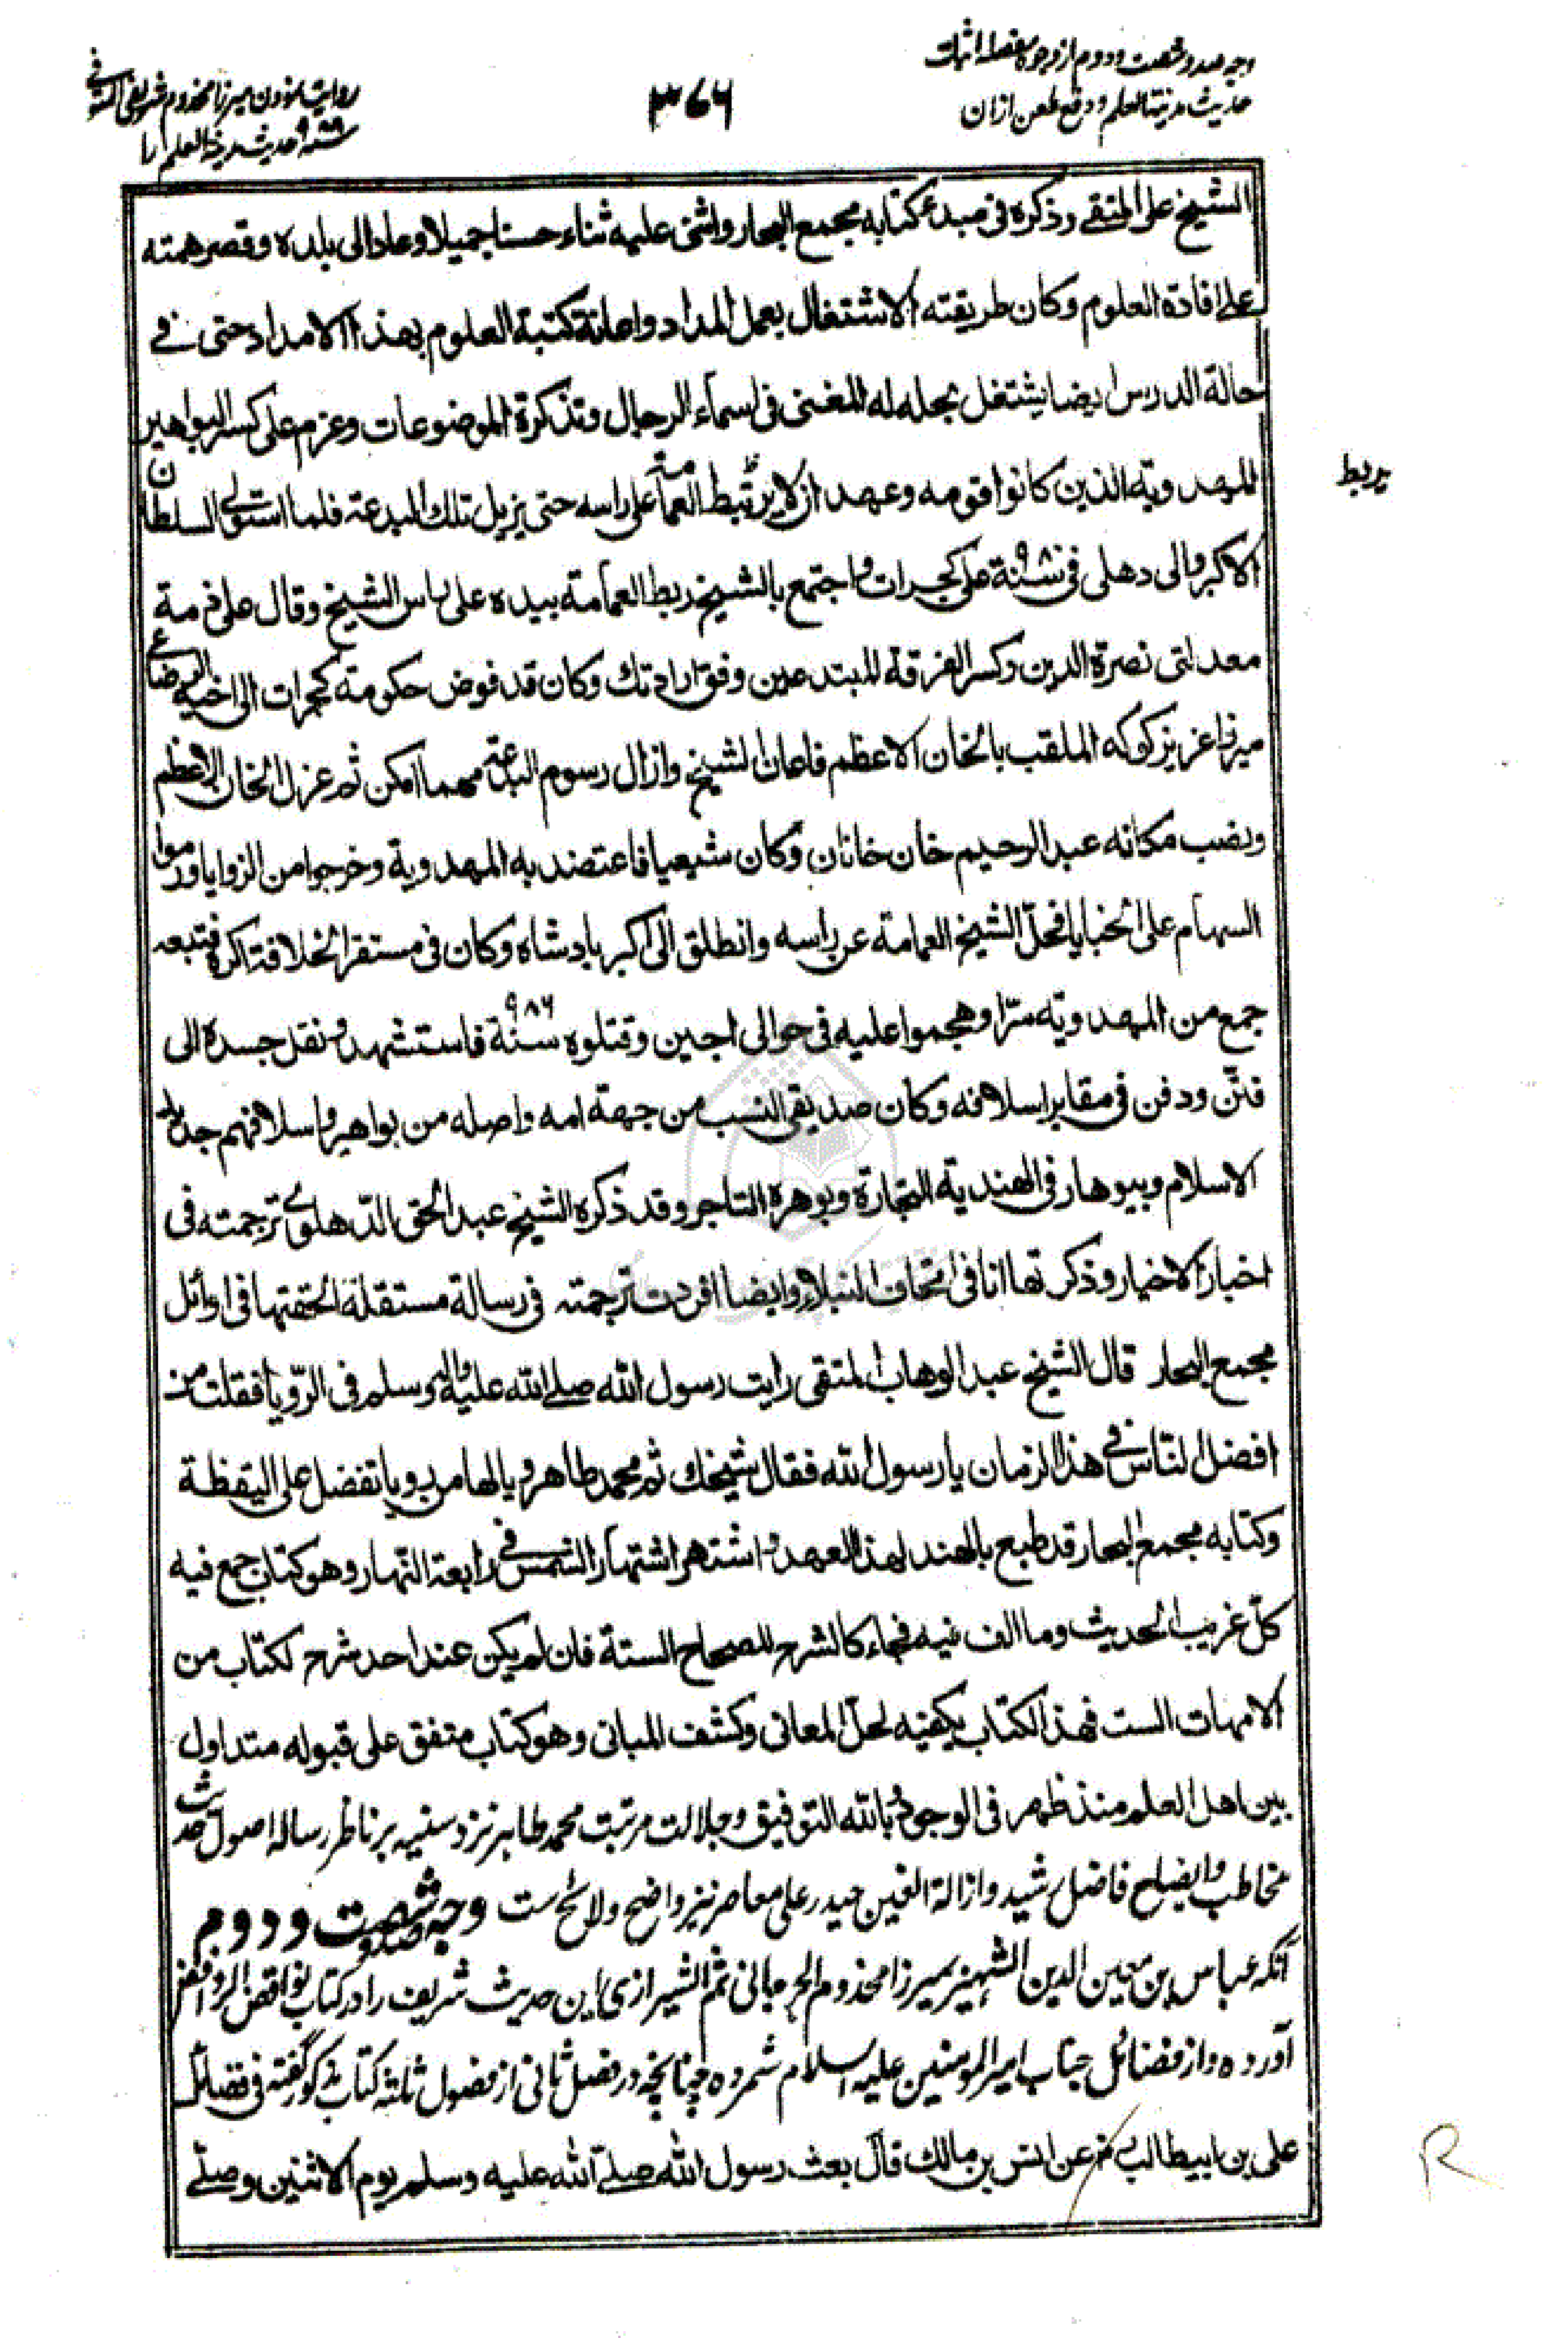 وجه صد و شصت و دوم از وجوه مفصله اثبات
حدیث مدینة العلم و دفع طعن ازان
۳۶۶
روایت نمودن میرزا مخدوم شریفی المتوفی
سنه ۹۸۸ حدیث مدینة العلم را
الشیخ علی المتقے وذکره فی مبدء کتابه مجمع البحار واثنی علیه ثناء حسنا جمیلا وعاد الی بلده وقصر همته
علی افادة العلوم وکان طریقته الاشتغال بعمل المداد واعانة کتبة العلوم بهذا الامداد حتی فے
حالة الدرس ایضا یشتغل بحله له المغنی فی اسماء الرجال وتذکرة الموضوعات وعزم علی کسر البواهیر
المهدویة الذین کانوا قومه وعهد ان لا یرتبط العمامة علی راسه حتی یزیل تلک البدعة فلما استولی السلطان
یربط
الاکبر والی دهلی فی سنة ۹۸۰ علی کجرات واجتمع بالشیخ ربط العمامة بیده علی راس الشیخ وقال علی ذمة
معدلتی نصرة الدین وکسر الفرقة المبتدعین وفق ارادتک وکان قد فوض حکومة کجرات الی اخیه الرضاعی
میرزا عزیز کوکه الملقب بالخان الاعظم فاعان الشیخ وازال رسوم البدعة مهما امکن ثم عزل الخان الاعظم
ونصب مکانه عبد الرحیم خان خانان وکان شیعیا فاعتضد به المهدویة وخرجوا من الزوایا ورموا
السهام علی الخبایا فحل الشیخ العمامة عن راسه وانطلق الی اکبر بادشاه وکان فی مستقر الخلافة اکره فتبعه
جمع من المهدویة سرّا وهجموا علیه فی حوالی اجین وقتلوه سنة ۹۸۶ فاستشهد ونقل جسده الی
فتن ودفن فی مقابر اسلافه وکان صدیقی النسب من جهة امه واصله من بواهیر واسلافهم جدید
الاسلام وبیوهار فی الهندیة التجارة وبوهره التاجر وقد ذکره الشیخ عبد الحق الدهلوی ترجمته فی
اخبار الاخیار وذکرتها انا فی اتحاف النبلاء وایضا افردت ترجمته فی رسالة مستقلة الحقتها فی اوائل
مجمع البحار قال الشیخ عبد الوهاب المتقی رایت رسول الله صلے الله علیه واله وسلم فی الرّویا فقلت من
افضل الناس فی هذا الزمان یا رسول الله فقال شیخک ثم محمد طاهر ویا لها من رویا تفضل علی الیقظة
وکتابه مجمع البحار قد طبع بالهند لهذا العهد واشتهر اشتهار الشمس فی رابعة النهار وهو کتاب جمع فیه
کلّ غریب الحدیث وما الف فیه فجاء کالشرح للصحاح الستة فان لم یکن عند احد شرح لکتاب من
الامهات الست فهذا الکتاب یکفیه لحلّ المعانی وکشف المبانی وهو کتاب متفق علی قبوله متداول
بین اهل العلم منذ ظهر فی الوجود وبالله التوفیق وجلالت مرتبت محمد طاهر نزد سنیه بر ناظر رساله اصول حدیث
مخاطب وایضاح فاضل رشید وازالة الغین حیدر علی معاصر نیز واضح ولائح ست وجه صد و شصت و دوم
آنکه عباس بن معین الدین الشهیر بمیرزا مخدوم الجرجانی ثم الشیرازی این حدیث شریف را در کتاب نواقض الروافض
آورده و از فضائل جناب امیر المومنین علیه السلام شمرده چنانچه در فصل ثانی از فصول ثلثه کتاب مذکور گفته فی فضائل
علی بن ابیطالب عن انس بن مالک قال بعث رسول الله صلے الله علیه وسلم یوم الاثنین وصلے
R